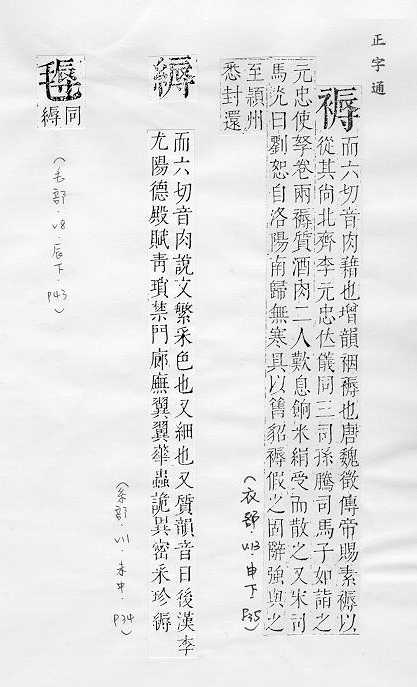 正字通
褥
而六切音肉藉也增韻裀褥也唐魏徵傳帝賜素褥以
從其尚北齊李元忠仕儀同三司孫騰司馬子如詣之
元忠使孥卷兩褥質酒肉二人歎息餉米絹受而散之又宋司
馬光曰劉恕自洛陽南歸無寒具以舊貂褥假之固辭強與之
至潁州
悉封還
(衣部．V13．申下．P35)
縟
而六切音肉說文繁采色也又細也又質韻音日後漢李
尤陽德殿賦青瑣禁門廊廡翼翼華蟲詭異密采珍縟
(糸部．V11．未中．P34)
同
縟
(毛部．V8．辰下．P43)